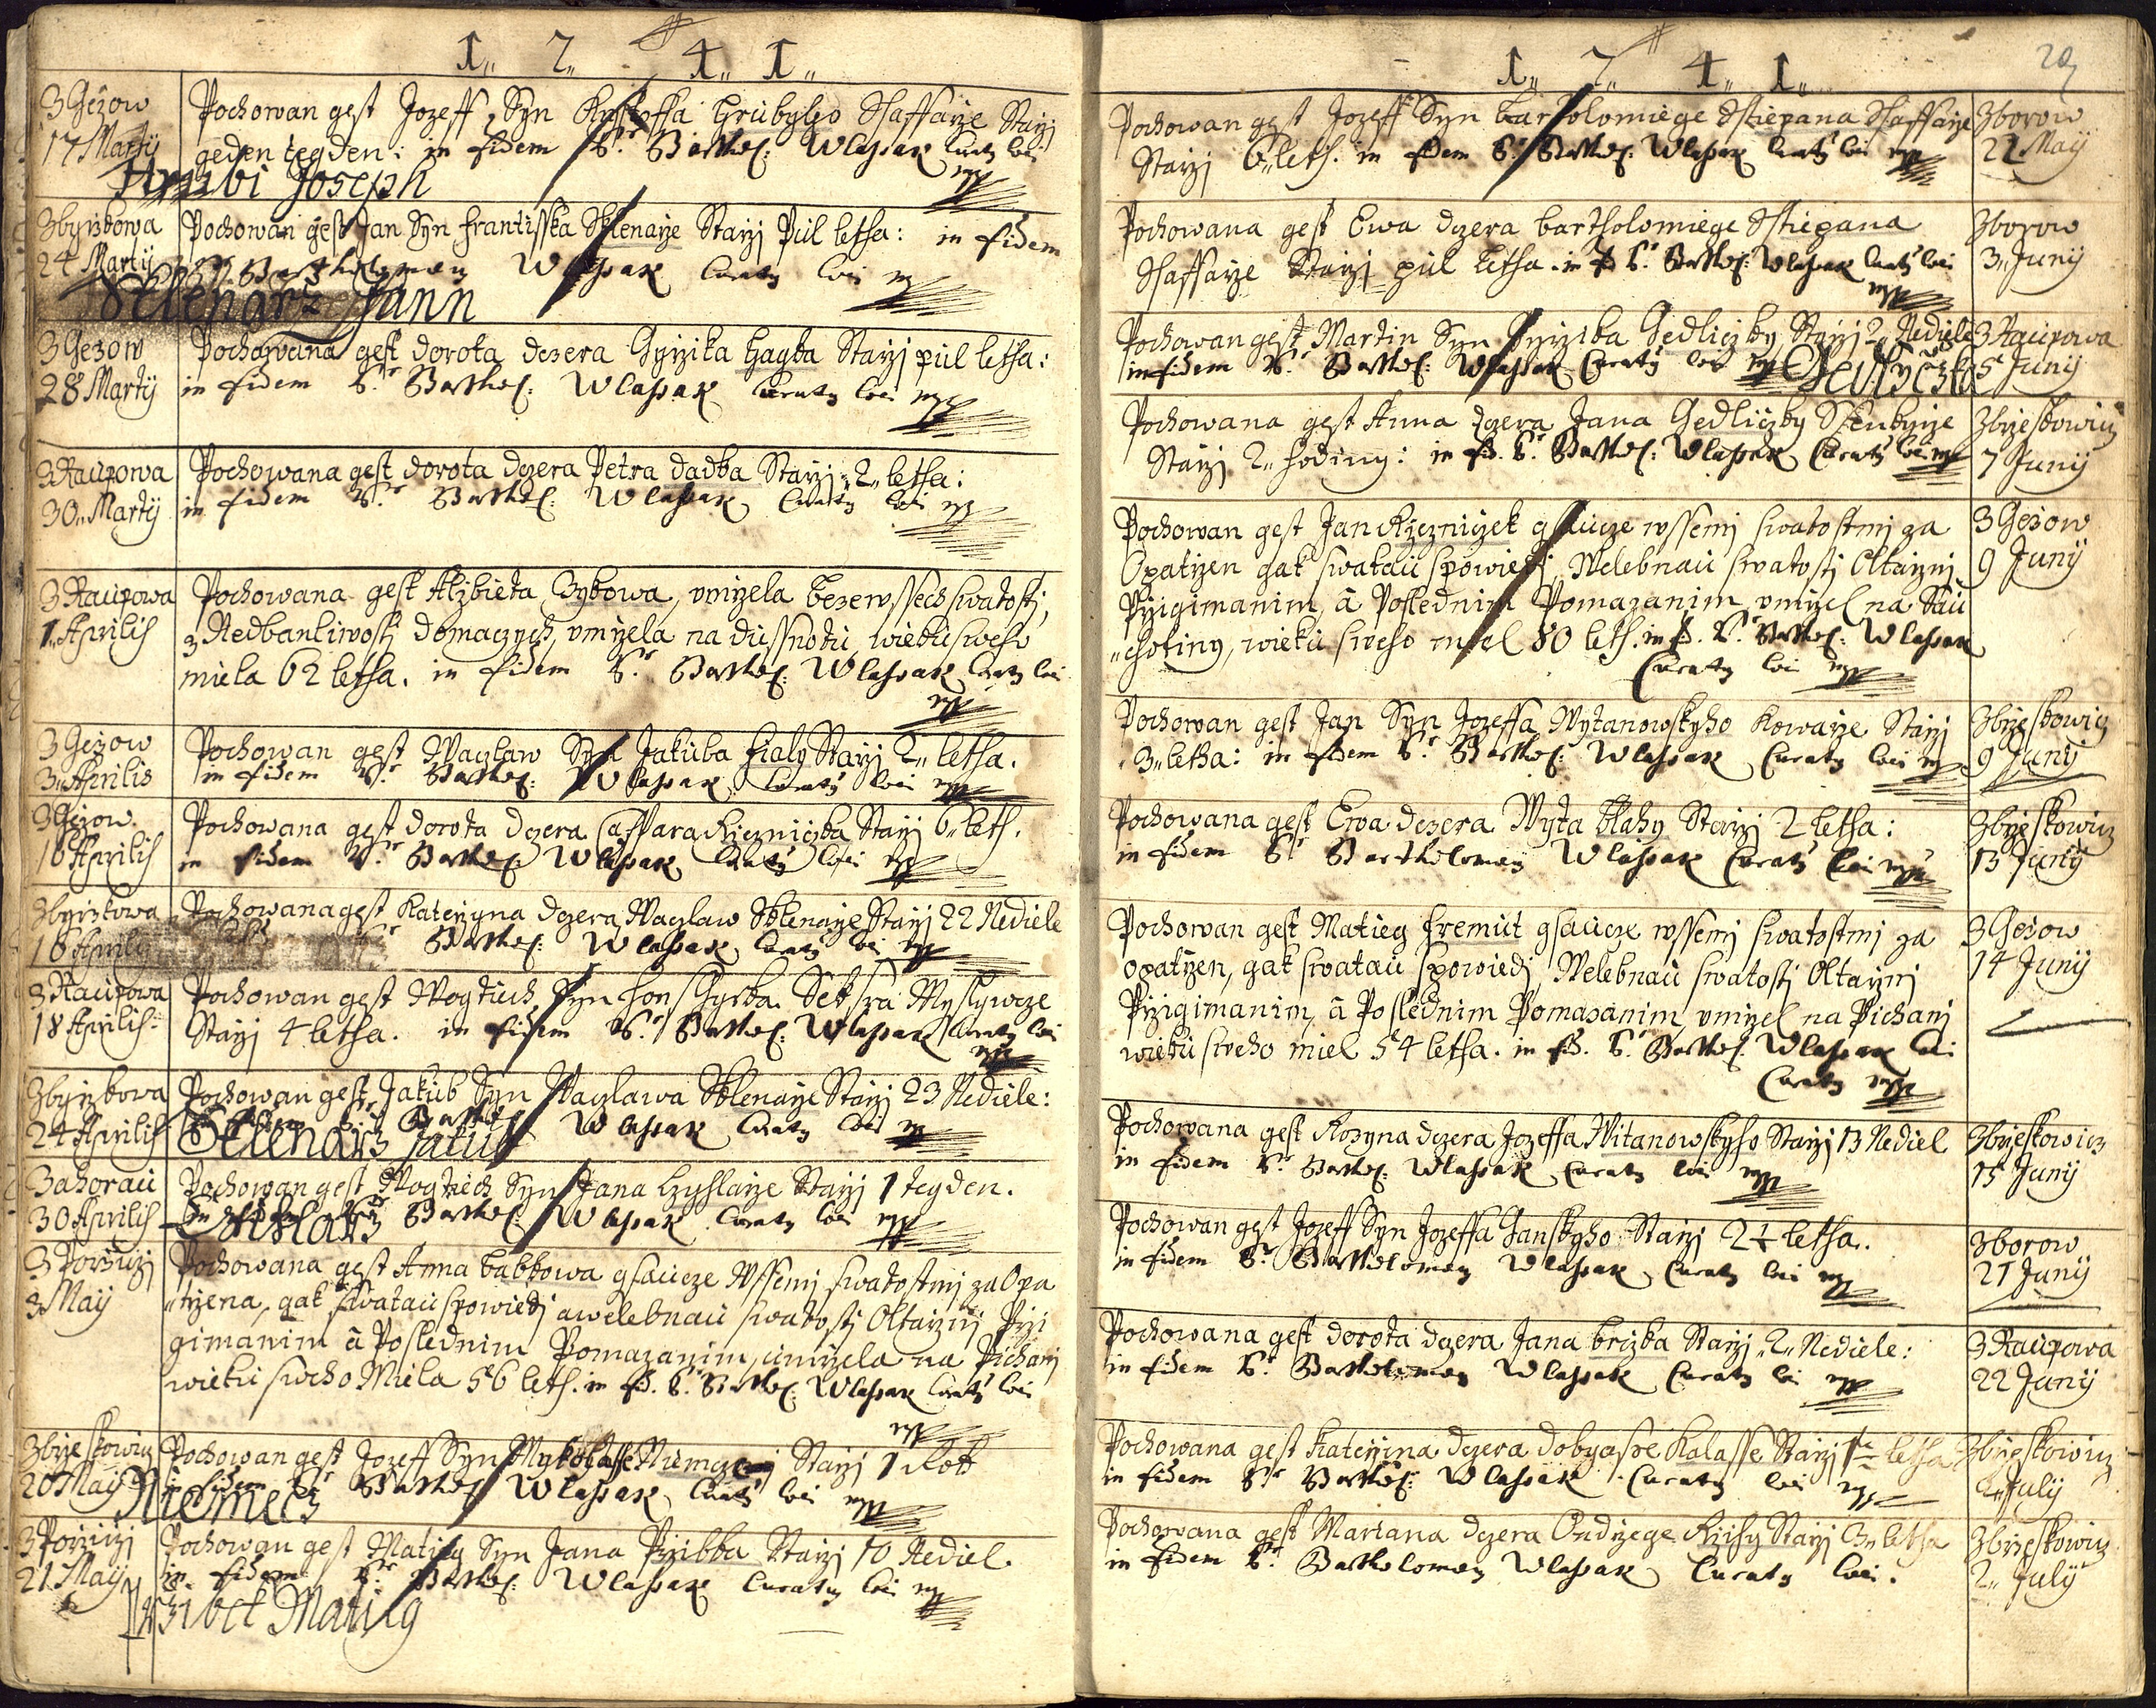 1 7 4 1
3 Gezow
17 Martij
Pochowan gest Jozeff Syn Krystoffa Hrubyho Ssaffarze Starzj
geden tegden: in fidem P. Barthol: Wlassak Curatg loci mpp
Hrubi Joseph
Zbyrzkowa
24 Martij
Pochowan gest Jan Syn Frantisska Sklenarze Starzj Pul letha: in fidem
P. Bartholomaeg Wlassak Curatg loci mp
Sklenarz Jann
3 Gezow
28 Martij
Pochowana gest dorota dczera Gyrzika Hagka Starzj pul letha:
in fidem P. Barthol: Wlassak Curatg loci mpp
3 Raupowa
30 Martij
Pochowana gest dorota dczera Petra dadka Starzj 2 letha:
in fidem P. Barthol: Wlassak Curatg loci mpp
3 Raupowa
1 Aprilis
Pochowana gest Alzbieta Zykowa, umrzela beze wssech swatostj,
z Nedbanliwostj domaczych, umrzela na dussnotu, wieku sweho
miela 62 letha. in fidem P. Barthol: Wlassak Curatg loci
mpp
3 Gezow
3 Aprilis
Pochowan gest Waczlaw Syn Jakuba Fialy Starzj 2 letha.
in fidem P. Barthol: Wlassak Curatg loci mpp
3 Gezow
16 Aprilis
Pochowana gest dorota dczera Casspara Rzezniczka Starzj 6 leth.
in fidem P. Barthol: Wlassak Curatg loci mpp
Zbyrzkowa
16 Aprilis
Pochowana gest Katerzyna dczera Waczlaw Sklenarze Starzj 22 Nediele
P. Barthol: Wlassak Curatg loci mpp
3 Raupowa
18 Aprilis
Pochowan gest Wogtiech Syn Myslywcze
Starzj 4 letha. in fidem P. Barthol: Wlassak Curatg loci
mpp
Zbyrzkowa
24 Aprilis
Pochowan gest Jakub Syn Waczlawa Sklenarze Starzj 23 Nediele:
P. Barthol: Wlassak Curatg loci mpp
Sklenarz Jakub
Zahorau
30 Aprilis
Pochowan gest Wogtiech Syn Jana Czyhlarze Starzj 1 tegden.
in fidem P. Barthol: Wlassak Curatg loci mpp
Czihlarz
3 Porziczj
3 Maij
Pochowana gest Anna Babkowa gsaucze Wssemj swatostmj za Opa
"trzena, gak swatau spowiedj a welebnau swatostj Oltarznj Przi
gimanim á Poslednim Pomazanim, umrzela na Pichanj
wieku sweho Miela 56 leth. in fid. P. Barthol: Wlassak Curatg loci
mpp
Zbrzeskowicz
20 Maij
Pochowan gest Jozeff Syn Mykolasse Niemcze Starzj 1 Rok
in fidem P. Barthol: Wlassak Curatg loci mpp
Niemecz
3 Porziczj
21 Maij
Pochowan gest Matieg Syn Jana Przibka Starzj 10 Nediel.
in fidem P. Barthol: Wlassak Curatg loci mpp
Matieg
1 7 4 1
Pochowan gest Jozeff Syn Bartolomiege Sstiepana Ssaffarze
Starzj 6 leth. in fidem P. Barthol: Wlassak Curatg loci mpp
Zborow
22 Maij
Pochowana gest Ewa dczera Bartholomiege Sstiepana
Ssaffarze Starzj pul letha. in fid. P. Barthol: Wlassak Curatg loci
mpp
Zborow
3 Junij
Pochowan gest Martin Syn Gyrzika Gedliczky, Starzj 2 Nediele
in fidem P. Barthol: Wlassak Curatg loci mpp
3 Raupowa
5 Junij
Pochowana gest Anna dczera Jana Gedliczky Ssenkyrze
Starzj 2 hodiny: in fid. P. Barthol: Wlassak Curatg loci mpp
Zbrzeskowicz
7 Junij
Pochowan gest Jan Rzezniczek gsaucze wssemj swatostmj za
Opatrzen gak swatau spowiedj, Welebnau swatostj Oltarznj
Przigimanim, á Poslednim Pomazanim, umrzel na Sau
"chotiny, wieku sweho miel 80 leth. in fid. P. Barthol: Wlassak
Curatg loci mpp
3 Gezow
9 Junij
Pochowan gest Jan Syn Jozeffa Wytanowskyho Kowarze Starzj
3 letha: in fidem P. Barthol: Wlassak Curatg loci mp
Zbrzeskowicz
9 Junij
Pochowana gest Ewa dczera Wyta Blahy Starzj 2 letha:
in fidem P. Bartholomeg Wlassak Curatg loci mpp
Zbrzeskowicz
13 Junij
Pochowan gest Matieg Fremut gsaucze wssemj swatostmj za
opatrzen, gak swatau spowiedj, Welebnau swatostj Oltarznj
Przigimanim, á Poslednim Pomazanim, umrzel na Pichanj
wieku sweho miel 54 letha. in fid. P. Barthol: Wlassak loci
Curatg mpp
3 Gezow
14 Junij
Pochowana gest Rozyna dczera Jozeffa Witanowskyho Starzj 13 Nediel
in fidem P. Barthol: Wlassak Curatg loci mpp
Zbrzeskowicz
15 Junij
Pochowan gest Jozeff Syn Jozeffa Janskyho Starzj 2 1/2 letha.
in fidem P. Bartholomeg Wlassak Curatg loci mpp
Zborow
21 Junij
Pochowana gest dorota dczera Jana Brizka Starzj 2 Nediele:
in fidem P. Bartholomeg Wlassak Curatg loci mpp
3 Raupowa
22 Junij
Pochowana gest Katerzina dczera Kalasse Starzj letha
in fidem P. Barthol: Wlassak Curatg loci mpp
Zbrzeskowicz
2 Julij
Pochowana gest Mariana dczera Ondrzege Rzihy Starzj 3 letha
in fidem P. Bartholomeg Wlassak Curatg loci.
Zbrzeskowicz
2 Julij